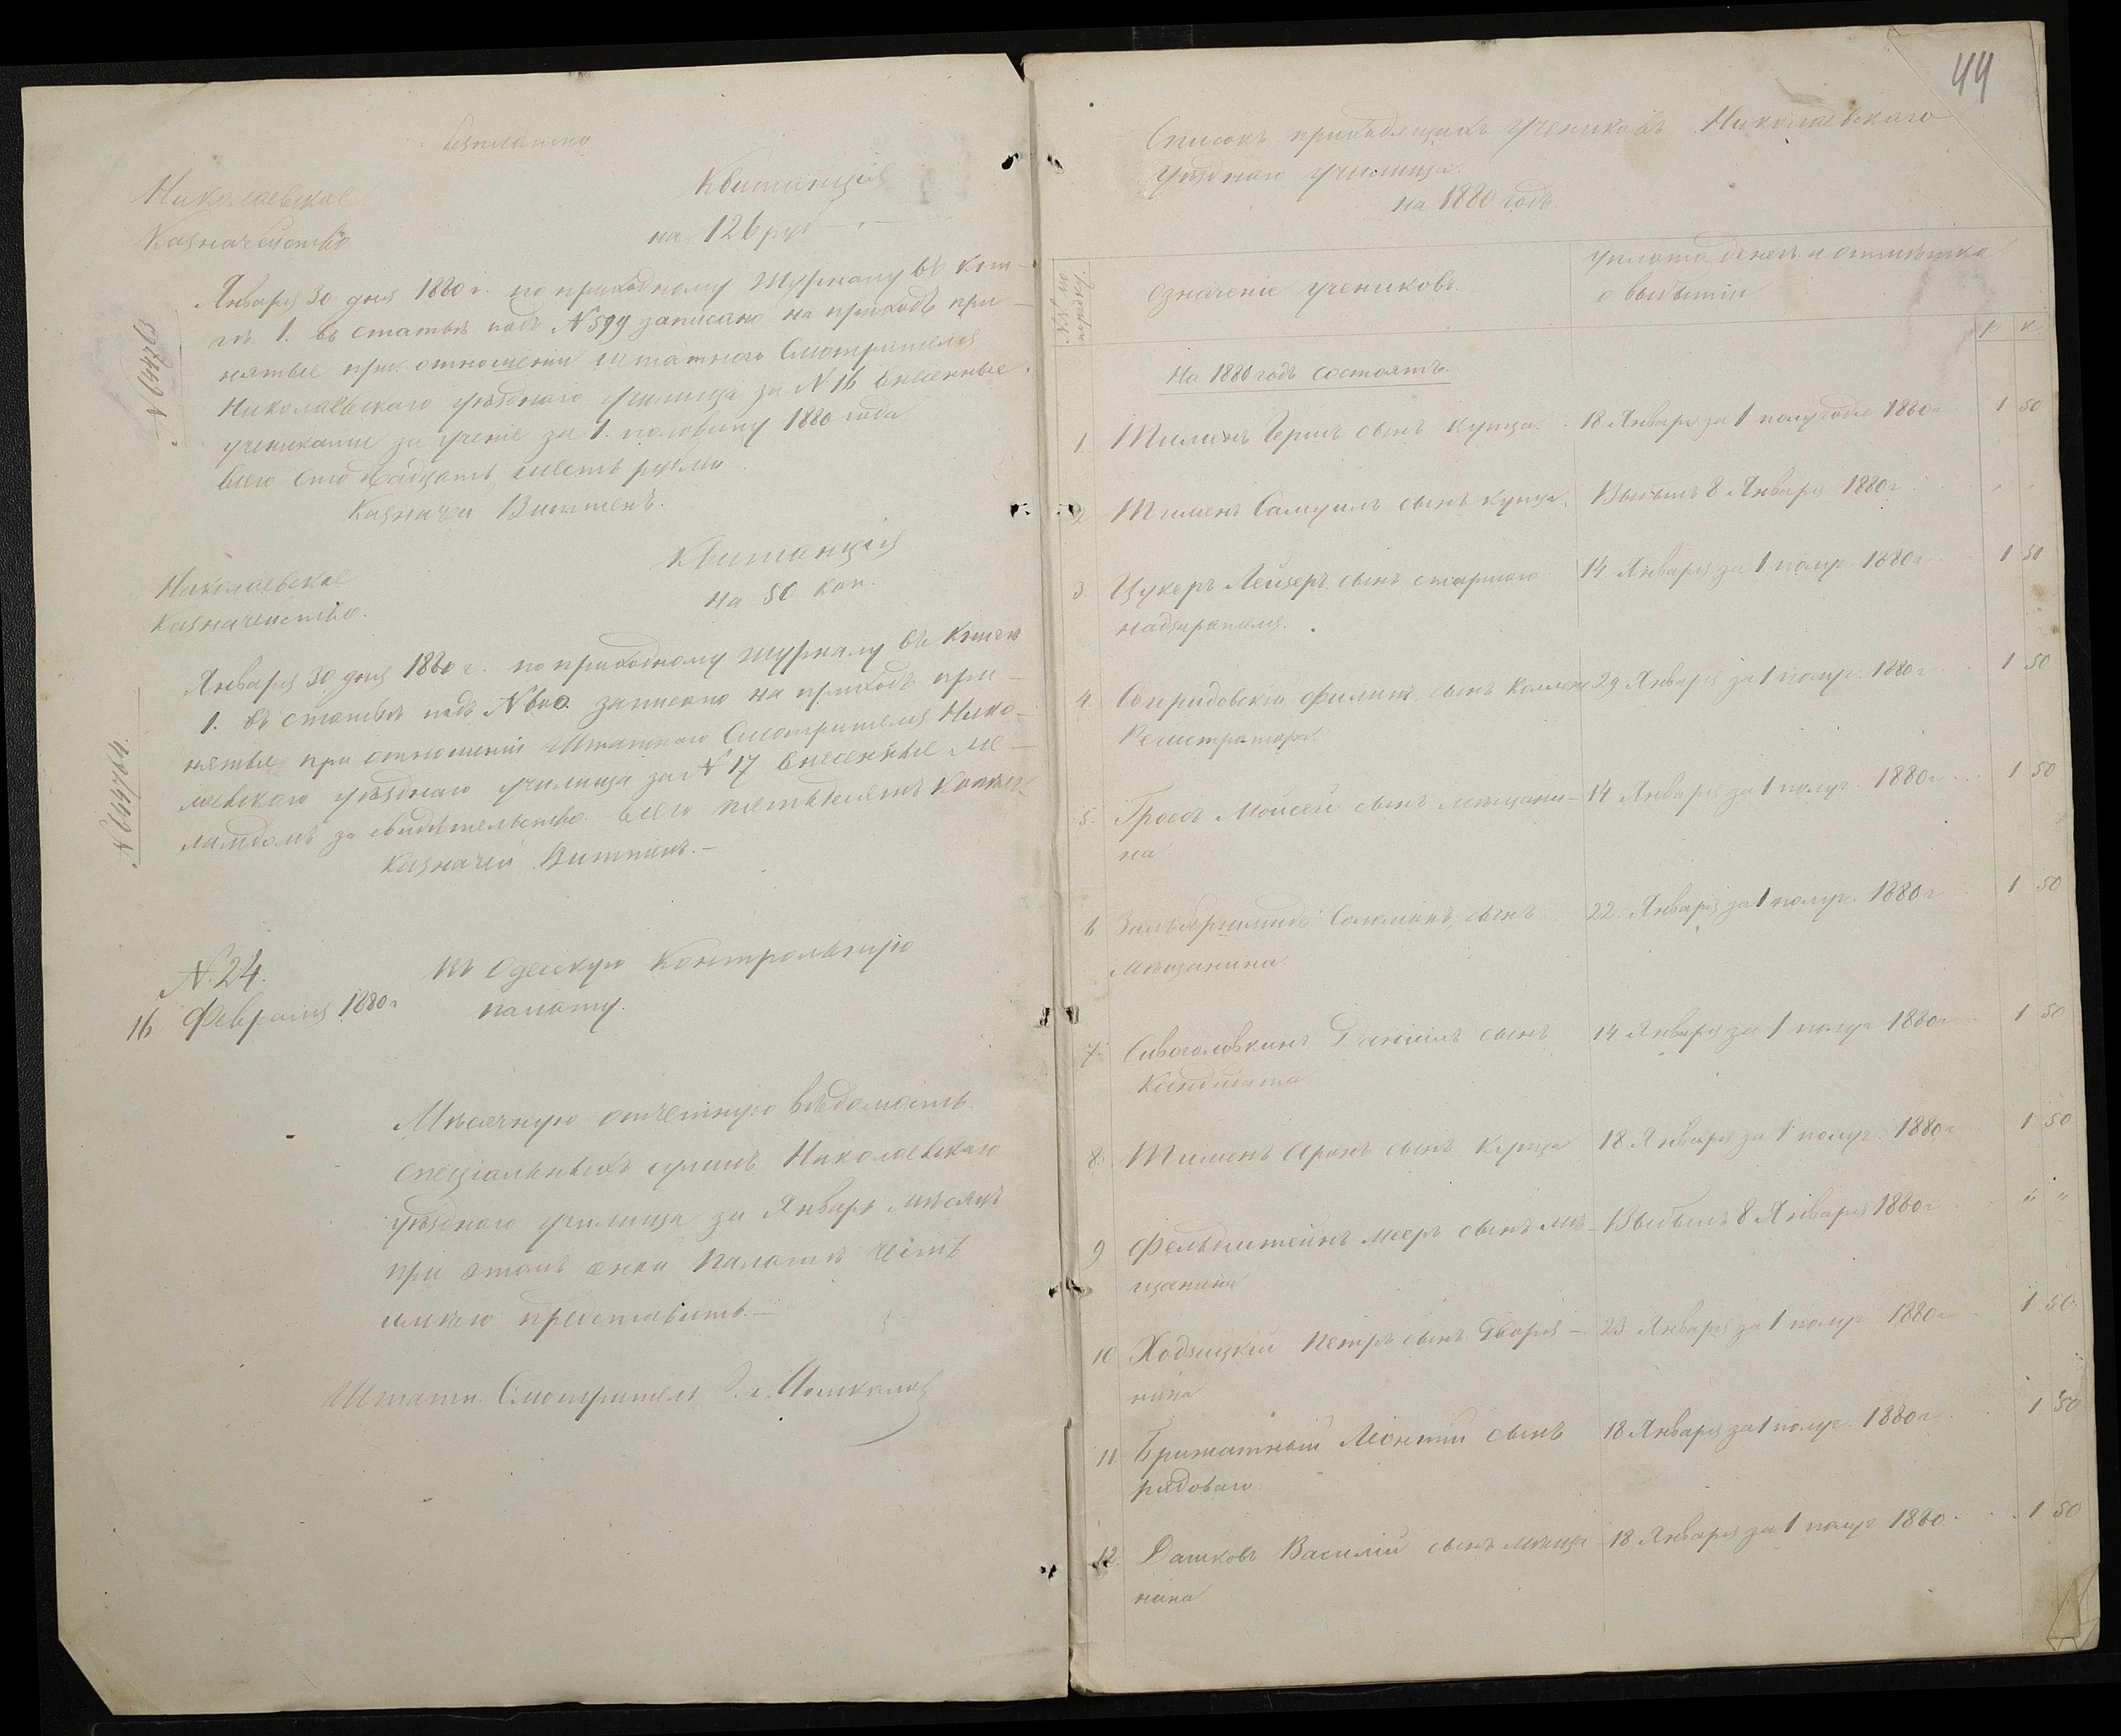 безплатно
Николаевское
Казначейство
Квитанція
на 126 руб
Января 30 дня 1880 г. по приходному журналу въ кни-
гѣ 1. въ статьѣ подъ № 599 записано на приходъ при-
нятые при отношеніи Штатнаго Смотрителя
Николаевскаго уѣзднаго училища за № 16 внесенные
учениками за ученіе за 1. половину 1880 года
всего сто двадцать шесть рублей
Казначей
Николаевское
Казначейство.
Квитанція
на 50 коп.
Января 30 дня 1880 г. по приходному журналу въ книгѣ
1. въ статьѣ подъ № 600 записано на приходъ при-
нятые при отношеніи Штатнаго Смотрителя Нико-
лаевскаго уѣзднаго училища за № 17 внесенные
за свидѣтельство всего пятьдесятъ копѣекъ
Казначей
№ 24.
16 Февраля 1880 г
Въ Одесскую Контрольную
палату.
Мѣсячную отчетную вѣдомость
спеціальныхъ суммъ Николаевскаго
уѣзднаго училища за Январь мѣсяцъ
при этомъ оной Палатѣ честь
имѣю представить.—
Штатн. Смотритель
44
Списокъ приходящихъ учениковъ Николаевскаго
уѣзднаго училища.
на 1880 годъ
№№ по порядку.
Означеніе учениковъ.
Уплата денегъ и отмѣтка
о выбытіи
р к.
На 1880 годъ состоятъ.
1. Тиминъ Герш сынъ купца. 18 Января за 1 полугодіе 1880 г. 1 50
2. Тименъ Самуилъ сынъ купца. Выбылъ 8 Января 1880 г. " "
3. Цукеръ Лейзеръ сынъ старшаго 14 Января за 1 полуг. 1880 г. 1 50
надзирателя.
4. Филиппъ сынъ Коллеж 29 Января за 1 полуг. 1880 г 1 50
Регистратора
5. Гроссъ Моисей сынъ мѣщани- 14 Января за 1 полуг 1880 г. 1 50
на
6 Соломонъ, сынъ 22. Января за 1 полуг. 1880 г 1 50
Мѣщанина
7. Сивоголовкинъ Даніилъ сынъ 14 Января за 1 полуг 1880 г. 1 50
Кандидата
8. Тименъ Аронъ сынъ купца 18 Января за 1 полуг. 1880 г 1 50
9 Фельдштейнъ Мееръ сынъ мѣ- Выбылъ 8 Января 1880 г. " "
щанина
10 Ходзицкій Петръ сынъ Дворя- 23 Января за 1 полуг 1880 г. 1 50
нина
11. Леонтій сынъ 18 Января за 1 полуг. 1880 г. 1 50
рядоваго
12. Дашковъ Василій сынъ мѣща 18 Января за 1 полуг 1880. 1 50
нина